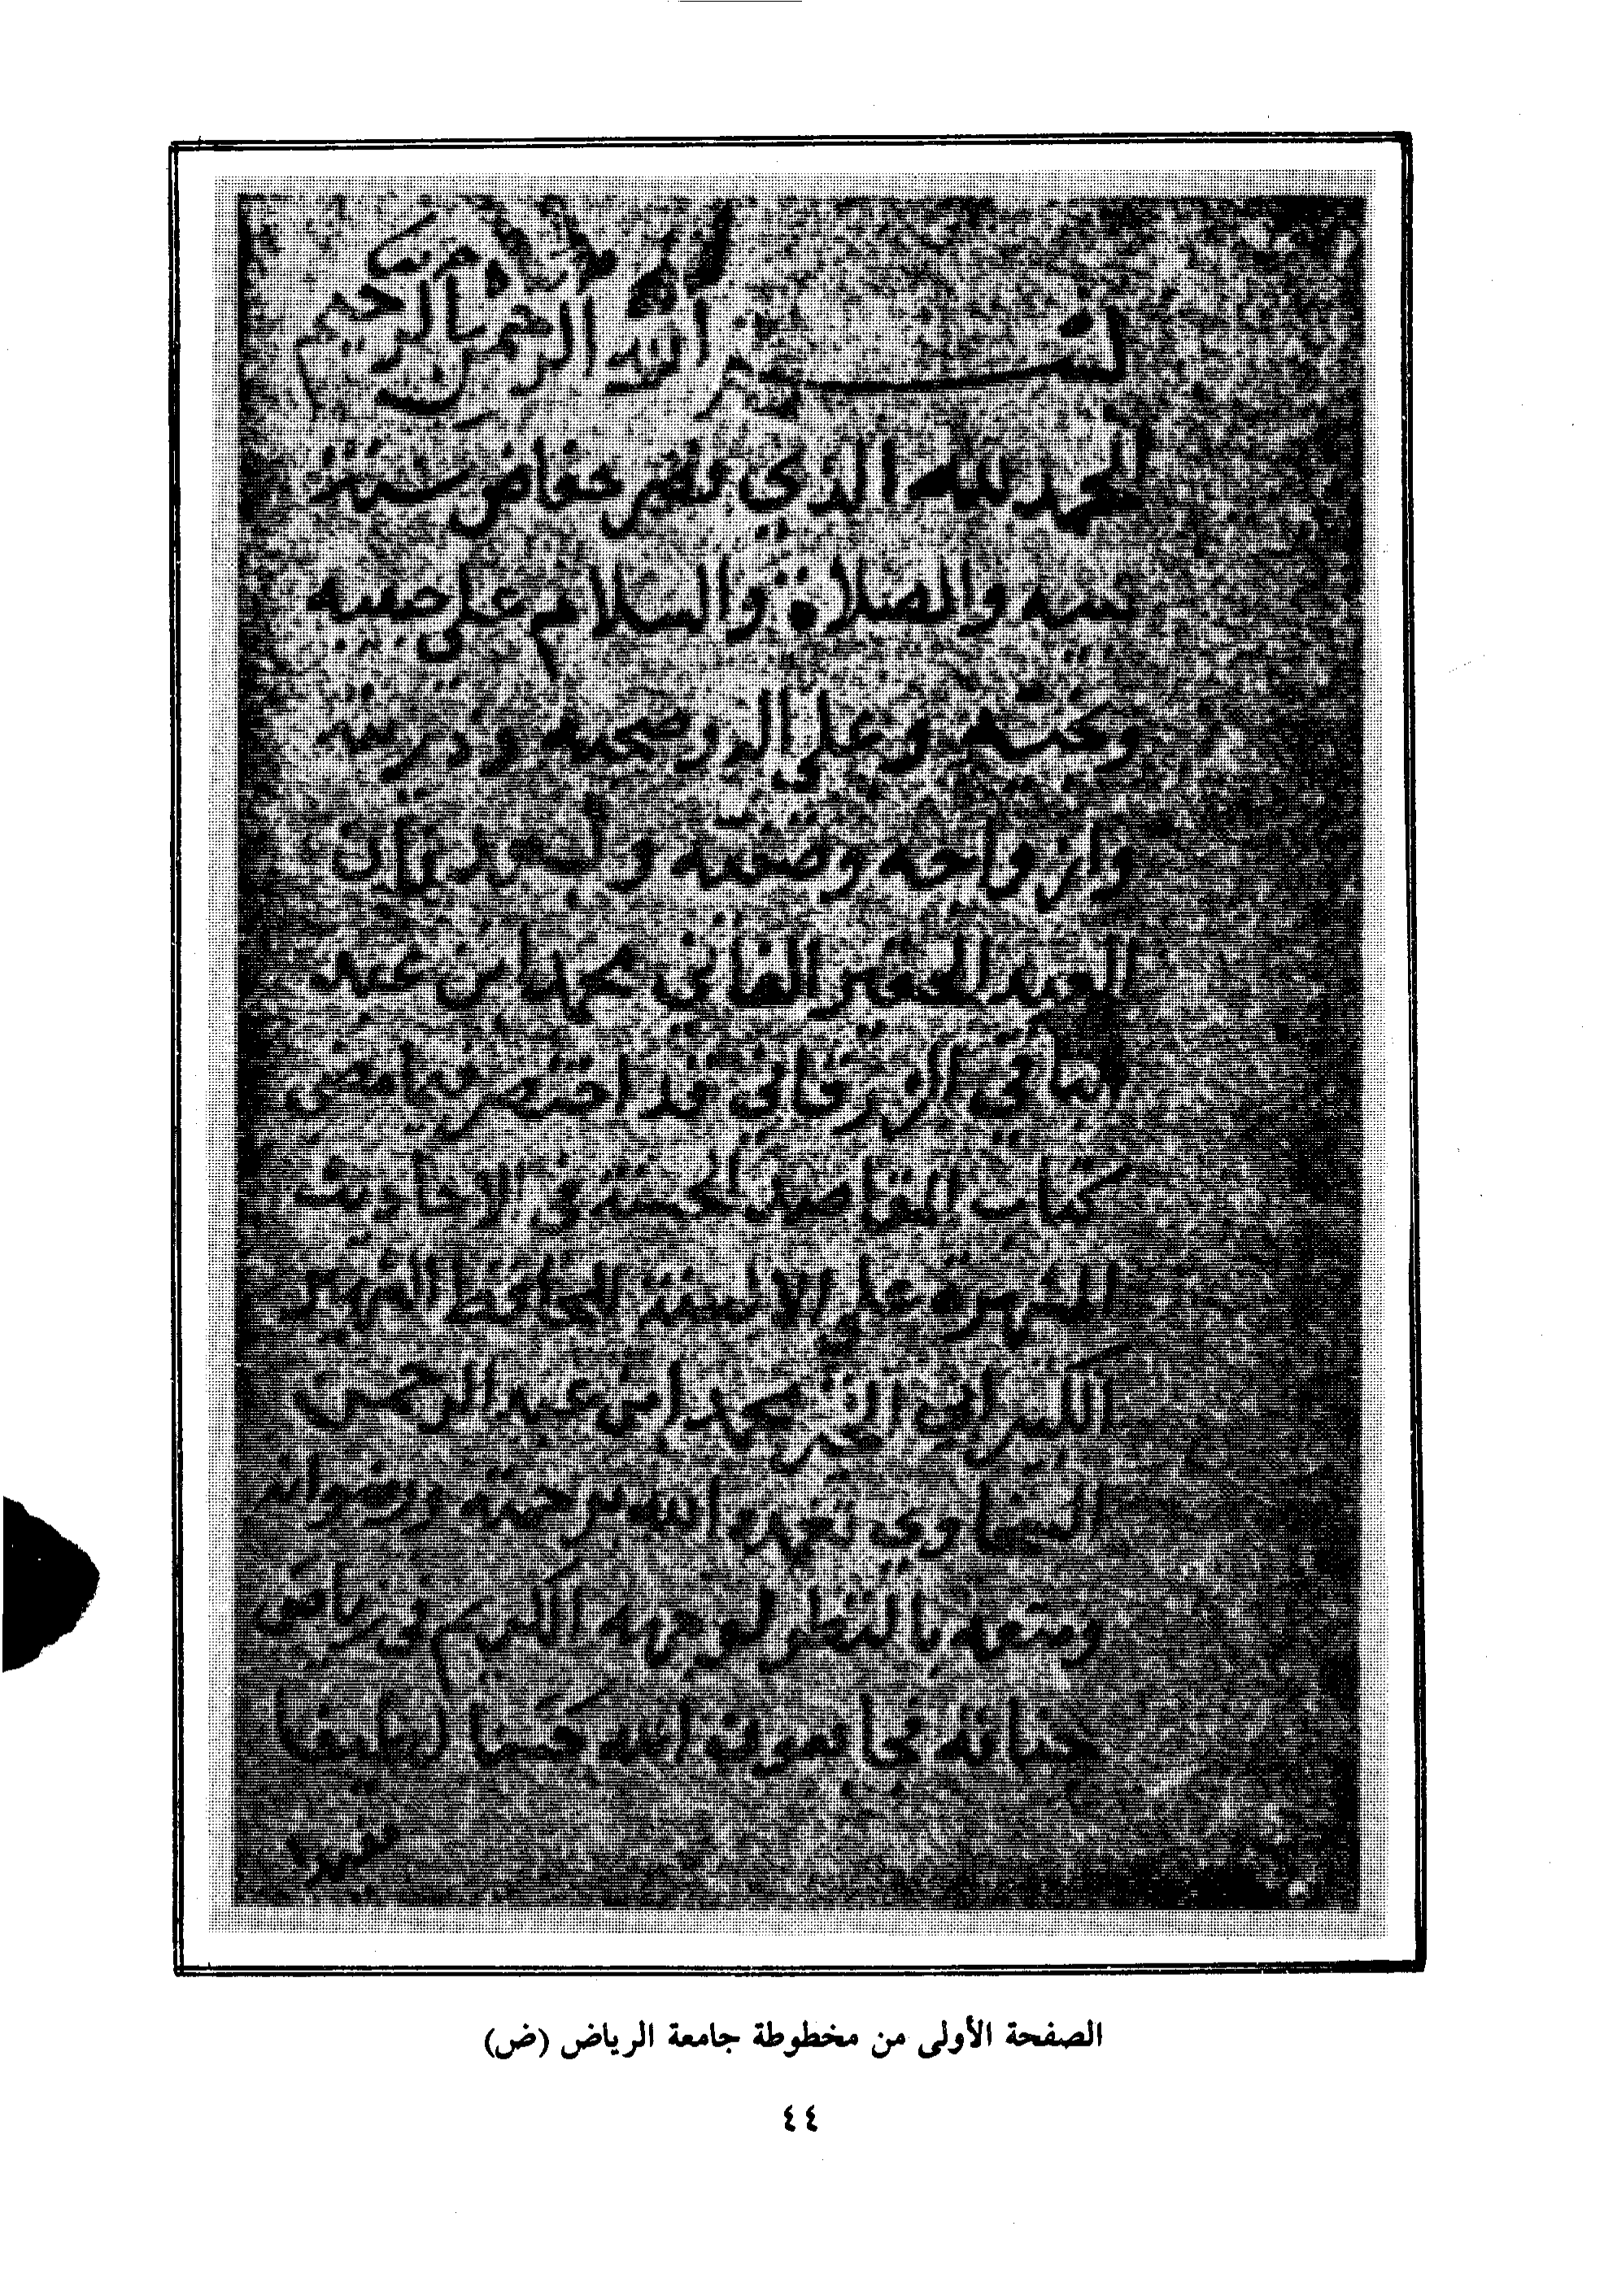 بسم الله الرحمن الرحيم
الحمد لله الذي نصر حفاض سنة
نبيه والصلاة والسلام على صفيه
ونجيه وعلى اله وصحبه وذريته
وازواجه وبعد فان
العبد الحقير الفاني محمد ابن عبد
الباقي الزرقاني قد اختصر فيما مضى
كتاب المقاصد الحسنة في الاحاديث
المشهرة على الالسنة للحافظ الشهير
الكبير ابي الخير محمد ابن عبد الرحمن
السخاوي تغمده الله برحمته ورضوانه
ومتعه بالنظر لوجهه الكريم في رياض
جنانه فجا بعون الله حسنا لطيفا
مفيدا
الصفحة الأولى من مخطوطة جامعة الرياض (ض)
٤٤